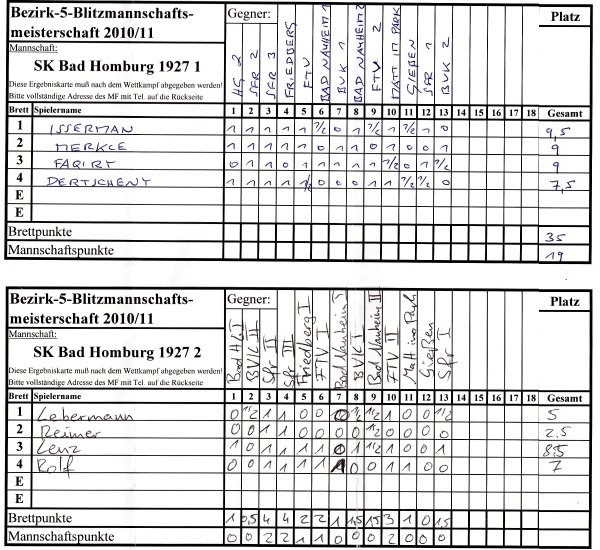 Bezirk-5-Blitzmannschafts-
meisterschaft 2010/11
Mannschaft:
SK Bad Homburg 1927 1
Diese Ergebniskarte muß nach dem Wettkampf abgegeben werden!
Bitte vollständige Adresse des MF mit Tel. auf die Rückseite
Gegner:
Platz
HG 2
SFR 2
SFR 3
FRIEDBERG
FTV
BAD NAUHEIM 1
BVK 1
BAD NAUHEIM 2
FTV 2
MATT IM PARK
GIEßEN
SFR 1
BVK 2
Brett Spielername 1 2 3 4 5 6 7 8 9 10 11 12 13 14 15 16 17 18 Gesamt
1 ISSERMAN 1 1 1 1 1 1/2 0 1 1/2 1 1/2 1 0 9,5
2 MERKLE 1 1 1 1 1 0 1 1 0 1 0 1 0 9
3 FAQIRY 0 1 1 0 1 1 1 1 1 1/2 0 1 1/2 9
4 DERTSCHENY 1 1 1 1 1/2 0 0 0 1 1 1/2 1/2 0 7,5
E
E
Brettpunkte 35
Mannschaftspunkte 19
Bezirk-5-Blitzmannschafts-
meisterschaft 2010/11
Mannschaft:
SK Bad Homburg 1927 2
Diese Ergebniskarte muß nach dem Wettkampf abgegeben werden!
Bitte vollständige Adresse des MF mit Tel. auf die Rückseite
Gegner:
Platz
Bad HG I
BVK II
Sfr II
Sfr III
Friedberg I
FTV I
Bad Nauheim I
BVK I
Bad Nauheim II
FTV II
Matt im Park
Gießen
Sfr I
Brett Spielername 1 2 3 4 5 6 7 8 9 10 11 12 13 14 15 16 17 18 Gesamt
1 Lebermann 0 1/2 1 1 0 0 0 1/2 1/2 1 0 0 1/2 5
2 Reimer 0 0 1 1 0 0 0 0 1/2 0 0 0 0 2,5
3 Lenz 1 0 1 1 1 1 0 1 1/2 1 0 0 1 8,5
4 Rolf 0 0 1 1 1 1 1 0 0 1 1 0 0 7
E
E
Brettpunkte 1 0,5 4 4 2 2 1 1,5 1,5 3 1 0 1,5
Mannschaftspunkte 0 0 2 2 1 1 0 0 0 2 0 0 0